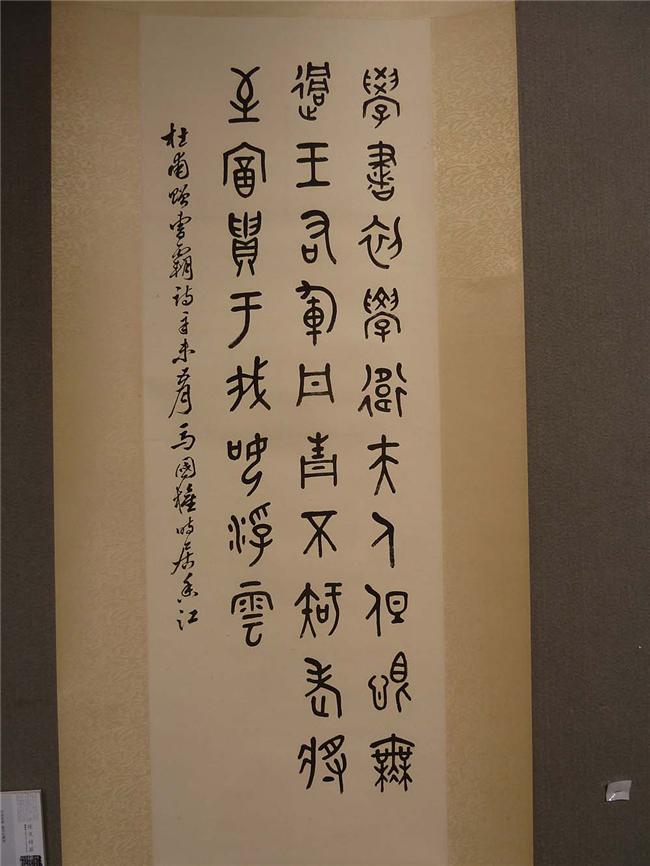 學書初學衛夫人但恨無
過王右軍丹青不知老將
至富貴于我如浮雲
杜甫贈曹霸詩辛未月馬國權時居香江